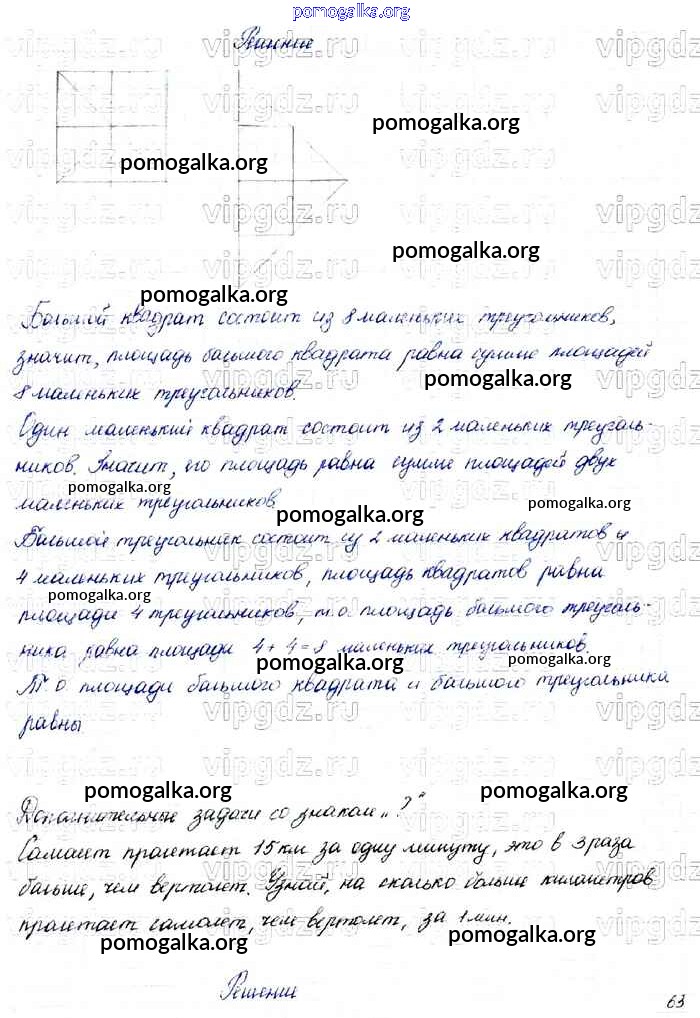 pomogalka.org
Решение
pomogalka.org
pomogalka.org
pomogalka.org
pomogalka.org
Большой квадрат состоит из 8 маленьких треугольников,
значит, площадь большого квадрата равна сумме площадей
pomogalka.org
8 маленьких треугольников.
Один маленький квадрат состоит из 2 маленьких треуголь-
ников. Значит, его площадь равна сумме площадей двух
pomogalka.org
маленьких треугольников.
pomogalka.org
pomogalka.org
Большой треугольник состоит из 2 маленьких квадратов и
4 маленьких треугольников, площадь квадратов равна
pomogalka.org
площади 4 треугольников, т.о. площадь большого треуголь-
ника равна площади 4+4=8 маленьких треугольников.
pomogalka.org
Т.о. площади большого квадрата и большого треугольника
равны
pomogalka.org
pomogalka.org
Дополнительные задачи со знаком „?"
Самолет пролетает 15 км за одну минуту, это в 3 раза
больше, чем вертолет. Узнай, на сколько больше километров
пролетает самолет, чем вертолет, за 1 мин.
pomogalka.org
pomogalka.org
Решение
63
vipgdz.ru